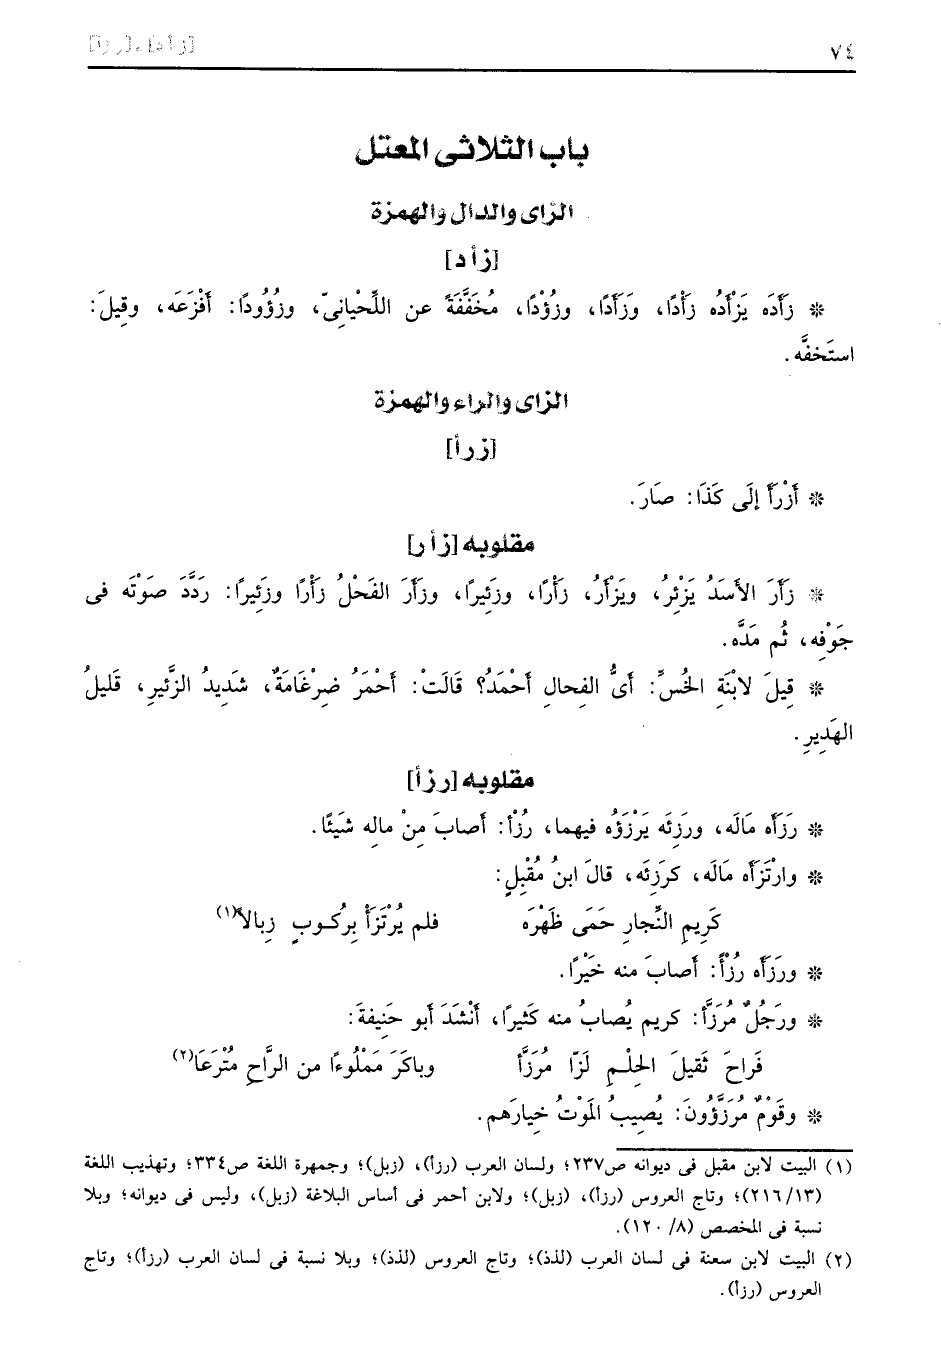 ٧٤
[زأد]، [زرأ]
باب الثلاثى المعتل
الزاى والدال والهمزة
[زأد]
* زَأَدَه يَزْأَدُه زَأْدًا، وَزَأَدًا، وزُؤْدًا، مُخَفَّفَةً عن اللِّحْيانِىّ، وزُؤُودًا: أَفْزَعَه، وقِيلَ:
استَخفَّه.
الزاى والراء والهمزة
[زرأ]
* أَزْرَأَ إلَى كَذَا: صَارَ.
مقلوبه [زأر]
* زَأَرَ الأَسَدُ يَزْئِرُ، ويَزْأَرُ، زَأْرًا، وزَئِيرًا، وزَأَرَ الفَحْلُ زَأْرًا وزَئِيرًا: رَدَّدَ صَوْتَه فى
جَوْفِه، ثُم مَدَّه.
* قِيلَ لابْنَةِ الخُسِّ: أَىُّ الفِحالِ أَحْمَدُ؟ قَالَتْ: أَحْمَرُ ضِرْغَامَةٌ، شَدِيدُ الزَّئيرِ، قَليلُ
الهَدِيرِ.
مقلوبه [رزأ]
* رَزَأَه مَالَه، ورَزِئَه يَرْزَؤُه فيهما، رُزْأً: أصابَ مِنْ مالِه شَيْئًا.
* وارْتَزَأَه مَالَه، كرَزِئَه، قالَ ابنُ مُقْبِلٍ:
كَرِيمِ النِّجارِ حَمَى ظَهْرَه فلم يُرْتَزَأْ بِرُكُـوبٍ زِبالاً(١)
* ورَزَأَه رُزْأً: أَصابَ منه خَيْرًا.
* ورَجُلٌ مُرَزَّأ: كريم يُصابُ منه كَثيرًا، أَنْشَدَ أبو حَنِيفةَ:
فَراحَ ثَقِيلَ الحِلْـمِ لَزّا مُرَزَّأً وباكَرَ مَمْلُوءًا من الرَّاحِ مُتْرَعَا(٢)
* وقَوْمٌ مُرَزَّؤُونَ: يُصِيبُ المَوْتُ خيارَهم.
(١) البيت لابن مقبل فى ديوانه ص٢٣٧؛ ولسان العرب (رزأ)، (زبل)؛ وجمهرة اللغة ص٣٣٤؛ وتهذيب اللغة
(١٣/ ٢١٦)؛ وتاج العروس (رزأ)، (زبل)؛ ولابن أحمر فى أساس البلاغة (زبل)، وليس فى ديوانه؛ وبلا
نسبة فى المخصص (٨/ ١٢٠).
(٢) البيت لابن سعنة فى لسان العرب (لذذ)؛ وتاج العروس (لذذ)؛ وبلا نسبة فى لسان العرب (رزأ)؛ وتاج
العروس (رزأ).